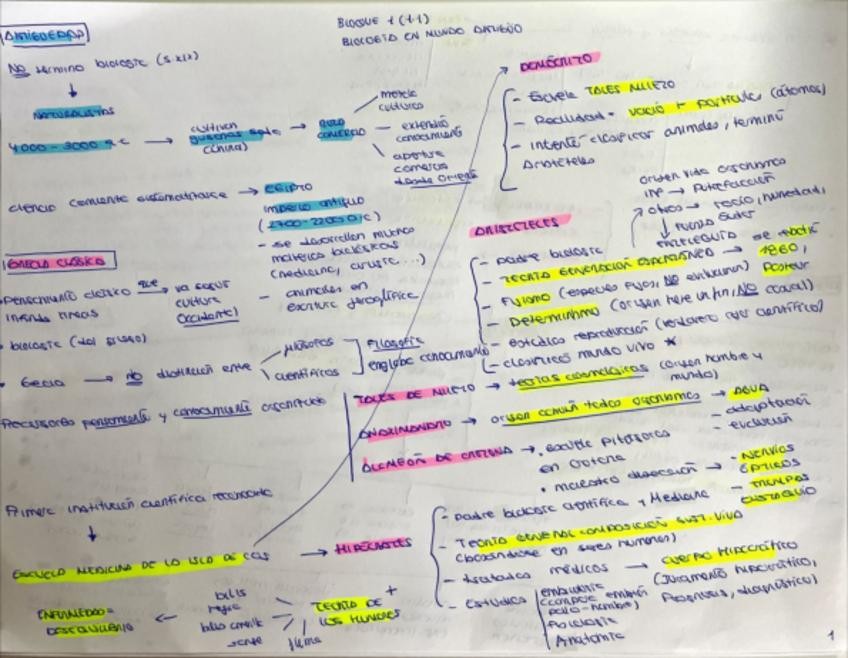 BLOQUE 1 (t.1)
BIOLOGÍA EN MUNDO ANTIGUO
ANTIGÜEDAD
NO término biología (s.XIX)
NATURALISTAS
4000 - 3000 a.C → cultivan gusanos seda (China) → RUTA COMERCIO
mezcla culturas
extensión conocimiento
apertura comercio desde Oriente
ciencia comienza sistematizarse → EGIPTO
imperio antiguo
(2700-2200 a/c)
- se desarrollan muchas
materias biológicas
(medicina, cirugía....)
- animales en
escritura jeroglífica
GRECIA CLÁSICA
pensamiento clásico que → va seguir
cultura
Occidente
• biología (del griego)
• Grecia → no distinción entre
filósofos
científicos
Filosofía
engloba conocimiento
Precursores pensamiento y conocimiento científico
Primera institución científica reconocida
ESCUELA MEDICINA DE LA ISLA DE COS → HIPÓCRATES
ENFERMEDAD =
DESEQUILIBRIO
←
bilis
negra
bilis amarilla
sangre
flema
TEORÍA DE
LOS HUMORES
DEMÓCRITO
- Escuela TALES MILETO
- Realidad = vacío + partícula (átomos)
- intenta clasificar animales, terminó
Aristóteles
origen vida organismo
→ Putrefacción
otros → rocío, humedad,
↓ fuerza
ENTELEQUIA
ARISTÓTELES
- padre biología
- TEORÍA GENERACIÓN ESPONTÁNEA → se 1860,
Pasteur
- Fijismo (especies fijas, NO evolucionan)
- Determinismo (origen tiene un fin, NO casual)
- estudios reproducción (científico)
- clasificó mundo vivo *
TALES DE MILETO → teorías cosmológicas (origen hombre y
mundo)
ANAXIMANDRO → origen común todos organismos → AGUA
- adaptación
- evolución
ALCMEÓN DE CROTONA → • escuela Pitágoras
en Crotona
• maestro disección →
- NERVIOS
ÓPTICOS
- TROMPAS
EUSTAQUIO
- padre biología científica y Medicina
- TEORÍA GENERAL COMPOSICIÓN SUST. VIVA
(basándose en seres humanos)
- tratados médicos → CUERPO HIPOCRÁTICO
(Juramento hipocrático,
Prognosis, diagnóstico)
- Estudios
embriones
(compara embrión
pollo-hombre)
Patología
Anatomía
1